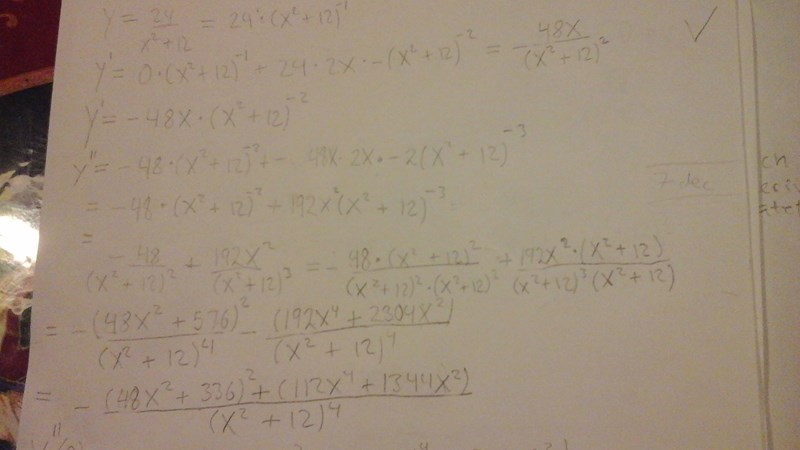 y = 24/(x²+12) = 24·(x²+12)⁻¹
y' = 0·(x²+12)⁻¹ + 24·2x·-(x²+12)⁻² = -48x/(x²+12)² ✓
y' = -48x·(x²+12)⁻²
y'' = -48·(x²+12)⁻² + - 48x·2x·-2(x²+12)⁻³
= -48·(x²+12)⁻² + 192x²(x²+12)⁻³
=
-48/(x²+12)² + 192x²/(x²+12)³ = -48·(x²+12)²/((x²+12)²·(x²+12)²) + 192x²·(x²+12)/((x²+12)³(x²+12))
= -(48x²+576)²/(x²+12)⁴ - (192x⁴+2304x²)/(x²+12)⁴
= -((48x²+336)²+(112x⁴+1344x²))/(x²+12)⁴